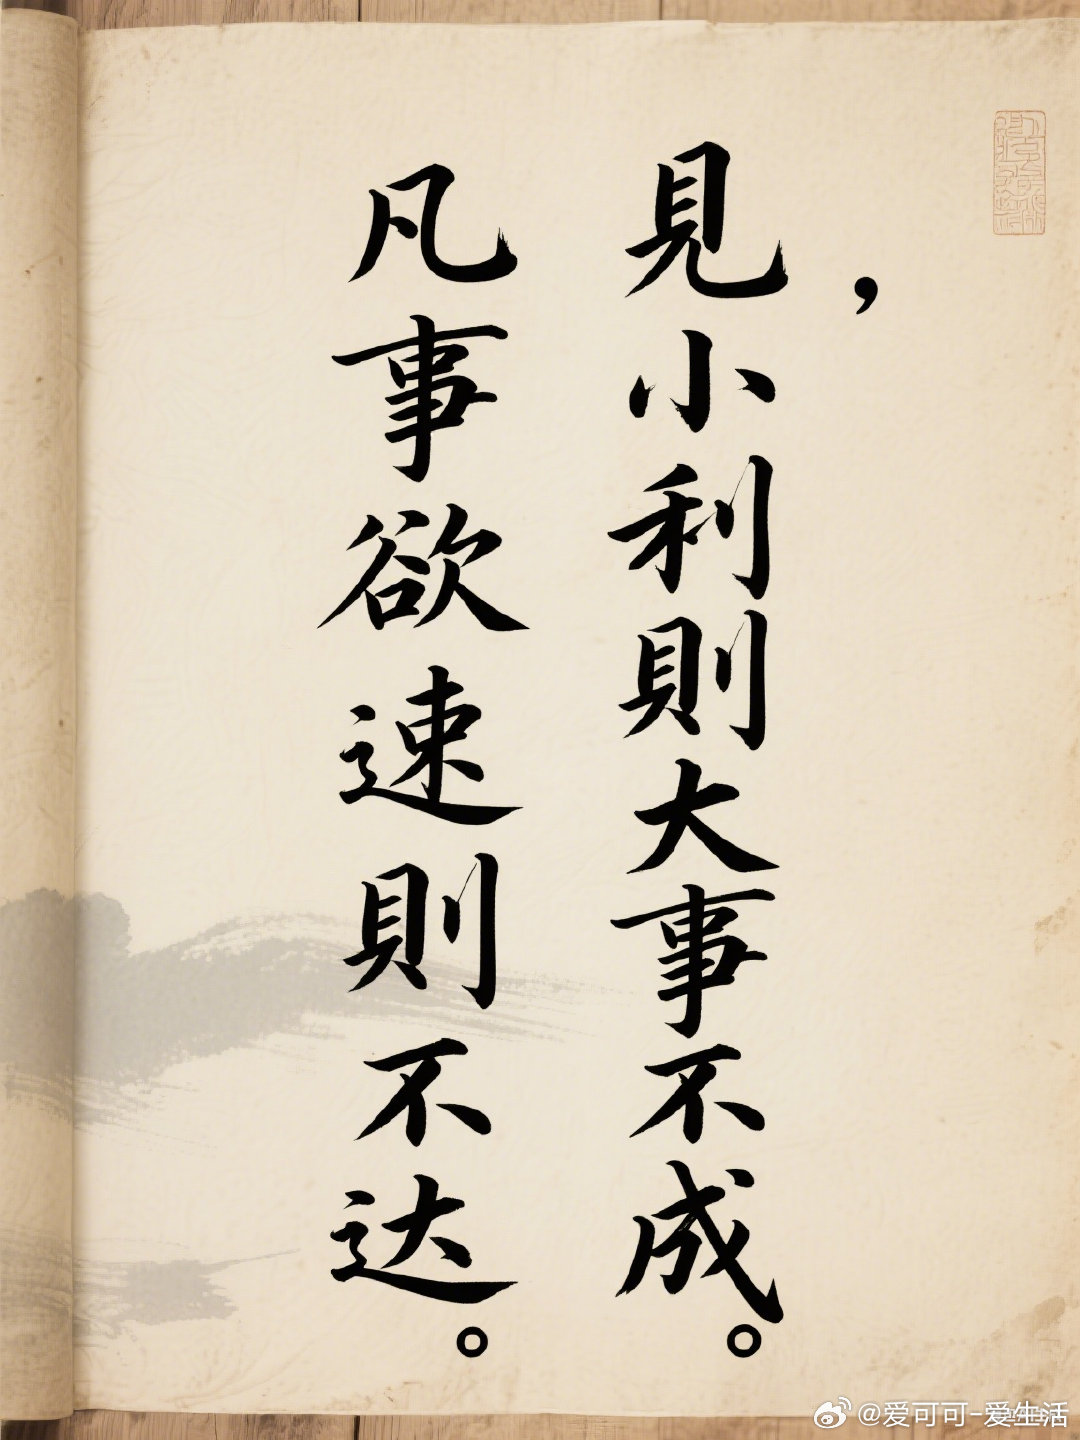 ，
見小利則大事不成。
凡事欲速則不达。
@爱可可-爱生活